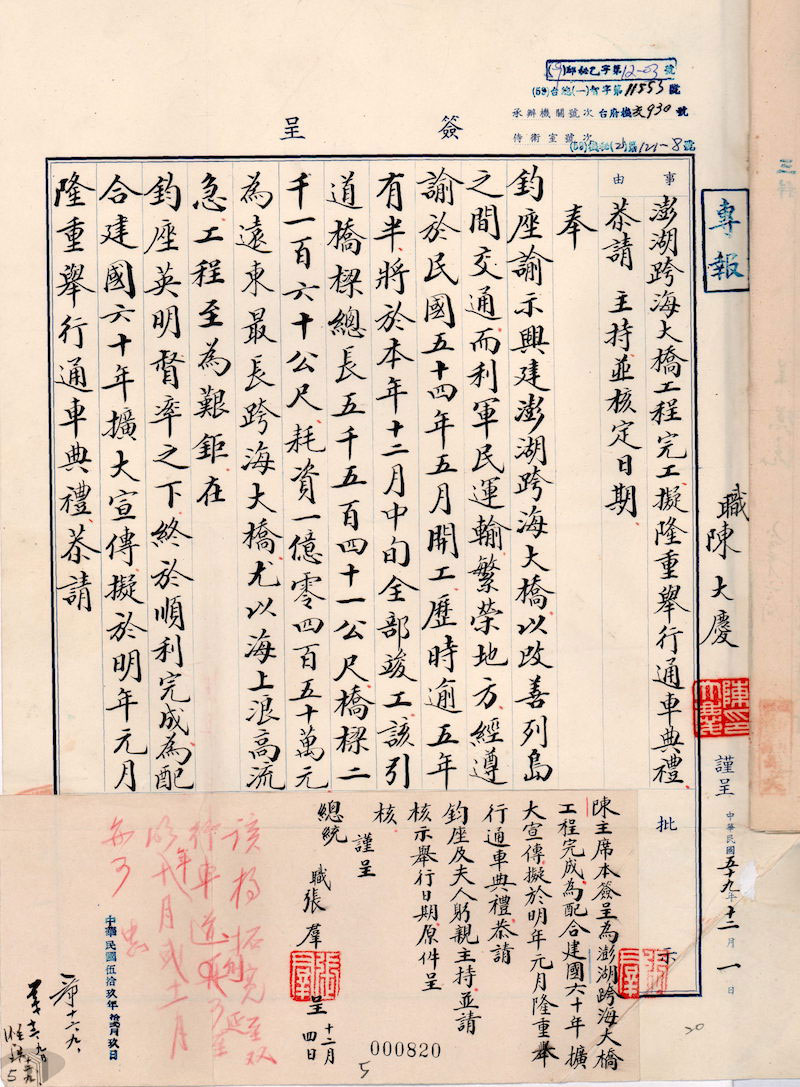 (59)邱秘乙字第12-03號
(59)台總(一)智字第11553號
承辦機關號次 台府機玄930號
侍衛室號次 (59)機秘(2)第121-8號
簽呈
專報
職陳大慶
謹呈
中華民國五十九年十二月一日
事由
澎湖跨海大橋工程完工擬隆重舉行通車典禮
恭請 主持並核定日期
奉
鈞座諭示興建澎湖跨海大橋以改善列島
之間交通而利軍民運輸繁榮地方經遵
諭於民國五十四年五月開工歷時逾五年
有半將於本年十二月中旬全部竣工該引
道橋樑總長五千五百四十一公尺橋樑二
千一百六十公尺耗資一億零四百五十萬元
為遠東最長跨海大橋尤以海上浪高流
急工程至為艱鉅在
鈞座英明督率之下終於順利完成為配
合建國六十年擴大宣傳擬於明年元月
隆重舉行通車典禮恭請
批示
陳主席本簽呈為澎湖跨海大橋
工程完成為配合建國六十年擴
大宣傳擬於明年元月隆重舉
行通車典禮恭請
鈞座及夫人躬親主持並請
核示舉行日期原件呈
核
謹呈
總統
職張羣
呈
十二月四日
該橋拓寬至双
行車道
明年十月或十一月
為可
中華民國伍拾玖年拾貳月玖日
000820
5
20